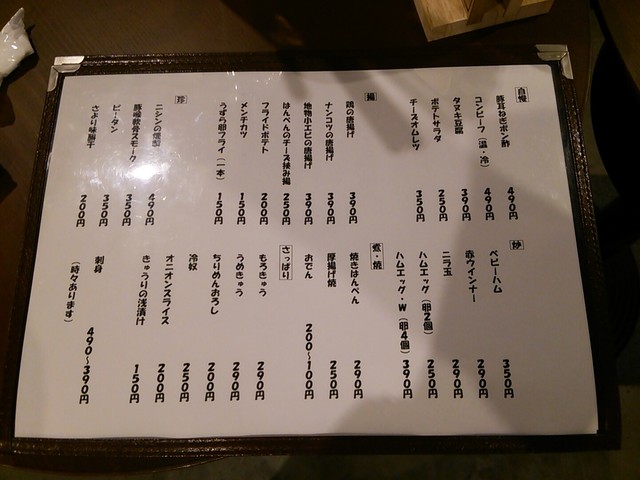 自慢
豚耳ねぎポン酢 490円
コンビーフ（温・冷） 490円
タヌキ豆腐 390円
ポテトサラダ 250円
チーズオムレツ 350円
揚
鶏の唐揚げ 390円
ナンコツの唐揚げ 390円
地物小エビの唐揚げ 390円
はんぺんのチーズ挟み揚 250円
フライドポテト 200円
メンチカツ 150円
うずら卵フライ（一本） 150円
珍
ニシンの燻製 490円
豚喉軟骨スモーク 350円
ピータン 350円
さより味醂干 200円
炒
ベビーハム 350円
赤ウインナー 290円
ニラ玉 290円
ハムエッグ（卵2個） 250円
ハムエッグ・W（卵4個） 390円
煮・焼
焼きはんぺん 290円
厚揚げ焼 250円
おでん 200～100円
さっぱり
もろきゅう 290円
うめきゅう 290円
ちりめんおろし 200円
冷奴 250円
オニオンスライス 200円
きゅうりの浅漬け 150円
刺身 490～390円
（時々あります）